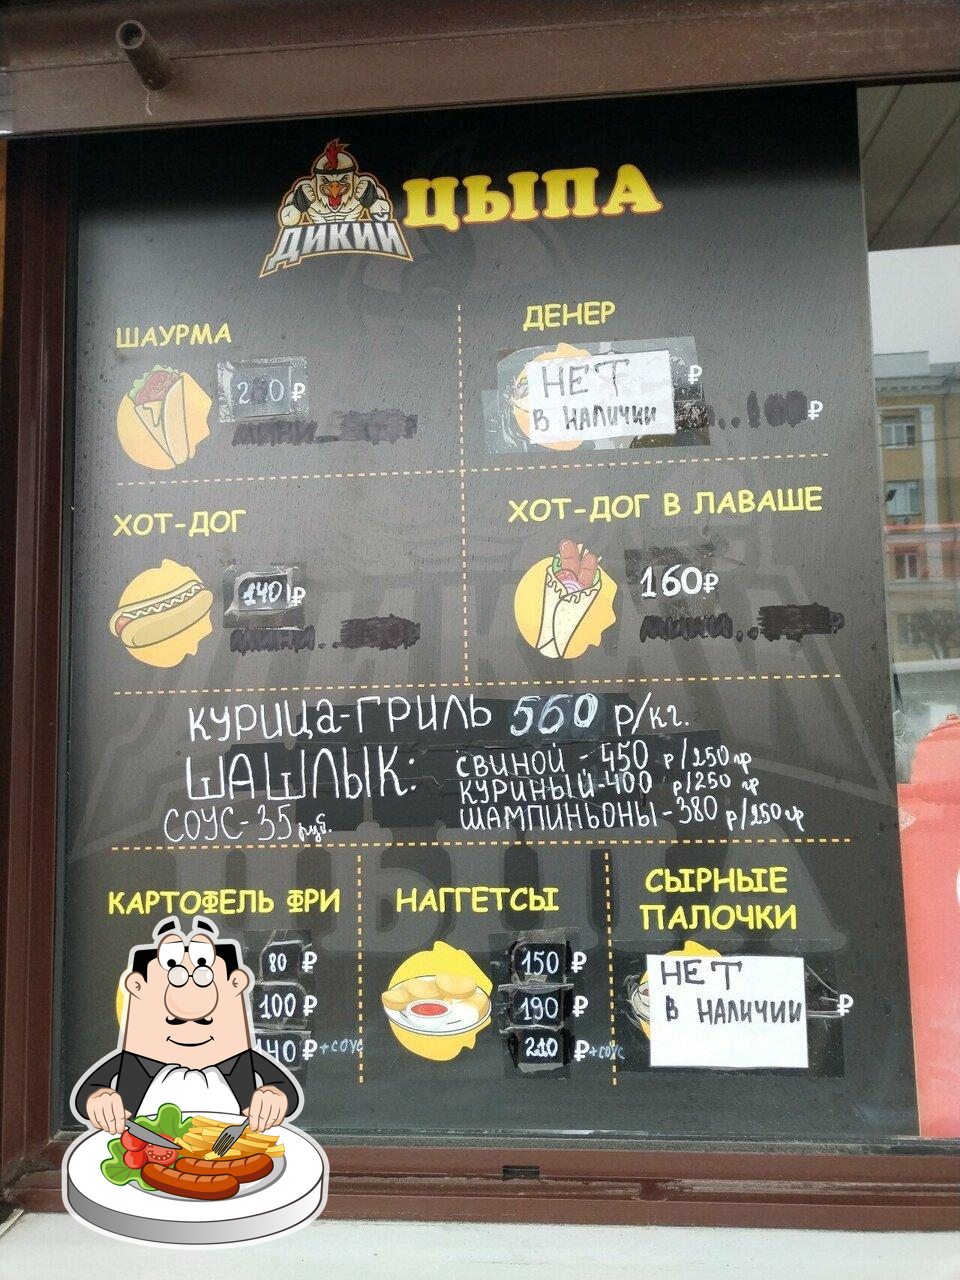 ДИКИЙ ЦЫПА
ШАУРМА
₽
ДЕНЕР
НЕТ
В НАЛИЧИИ
₽
160₽
ХОТ-ДОГ
140₽
МИНИ
ХОТ-ДОГ В ЛАВАШЕ
160₽
МИНИ
КУРИЦА-ГРИЛЬ 560 р/кг.
ШАШЛЫК:
СВИНОЙ - 450 р/250 гр
КУРИНЫЙ-400 р/250 гр
ШАМПИНЬОНЫ-380 р/150 гр
СОУС-35 руб.
КАРТОФЕЛЬ ФРИ
80 ₽
100 ₽
140 ₽+соус
НАГГЕТСЫ
150 ₽
190 ₽
210 ₽+соус
СЫРНЫЕ
ПАЛОЧКИ
НЕТ
В НАЛИЧИИ
₽